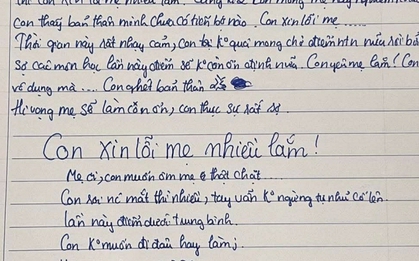 con thấy bản thân mình chưa có tiến bộ nào. Con xin lỗi mẹ
Thời gian này rất nhạy cảm, con bị k° quá mong chờ điểm nữa rồi
sợ các môn học lần này điểm số k° còn ổn định nữa. Con yêu mẹ lắm! Con
vô dụng mà .... Con ghét bản thân
Hi vọng mẹ sẽ làm con, con thực sự rất sợ.
Con xin lỗi mẹ nhiều lắm!
Mẹ ơi, con muốn ôm mẹ thật chặt.
Con rơi nc mắt thì nhiều, tay vẫn k° ngừng tự nhủ cố lên
lần này điểm dưới trung bình.
Con k° muốn đi đâu hay làm j